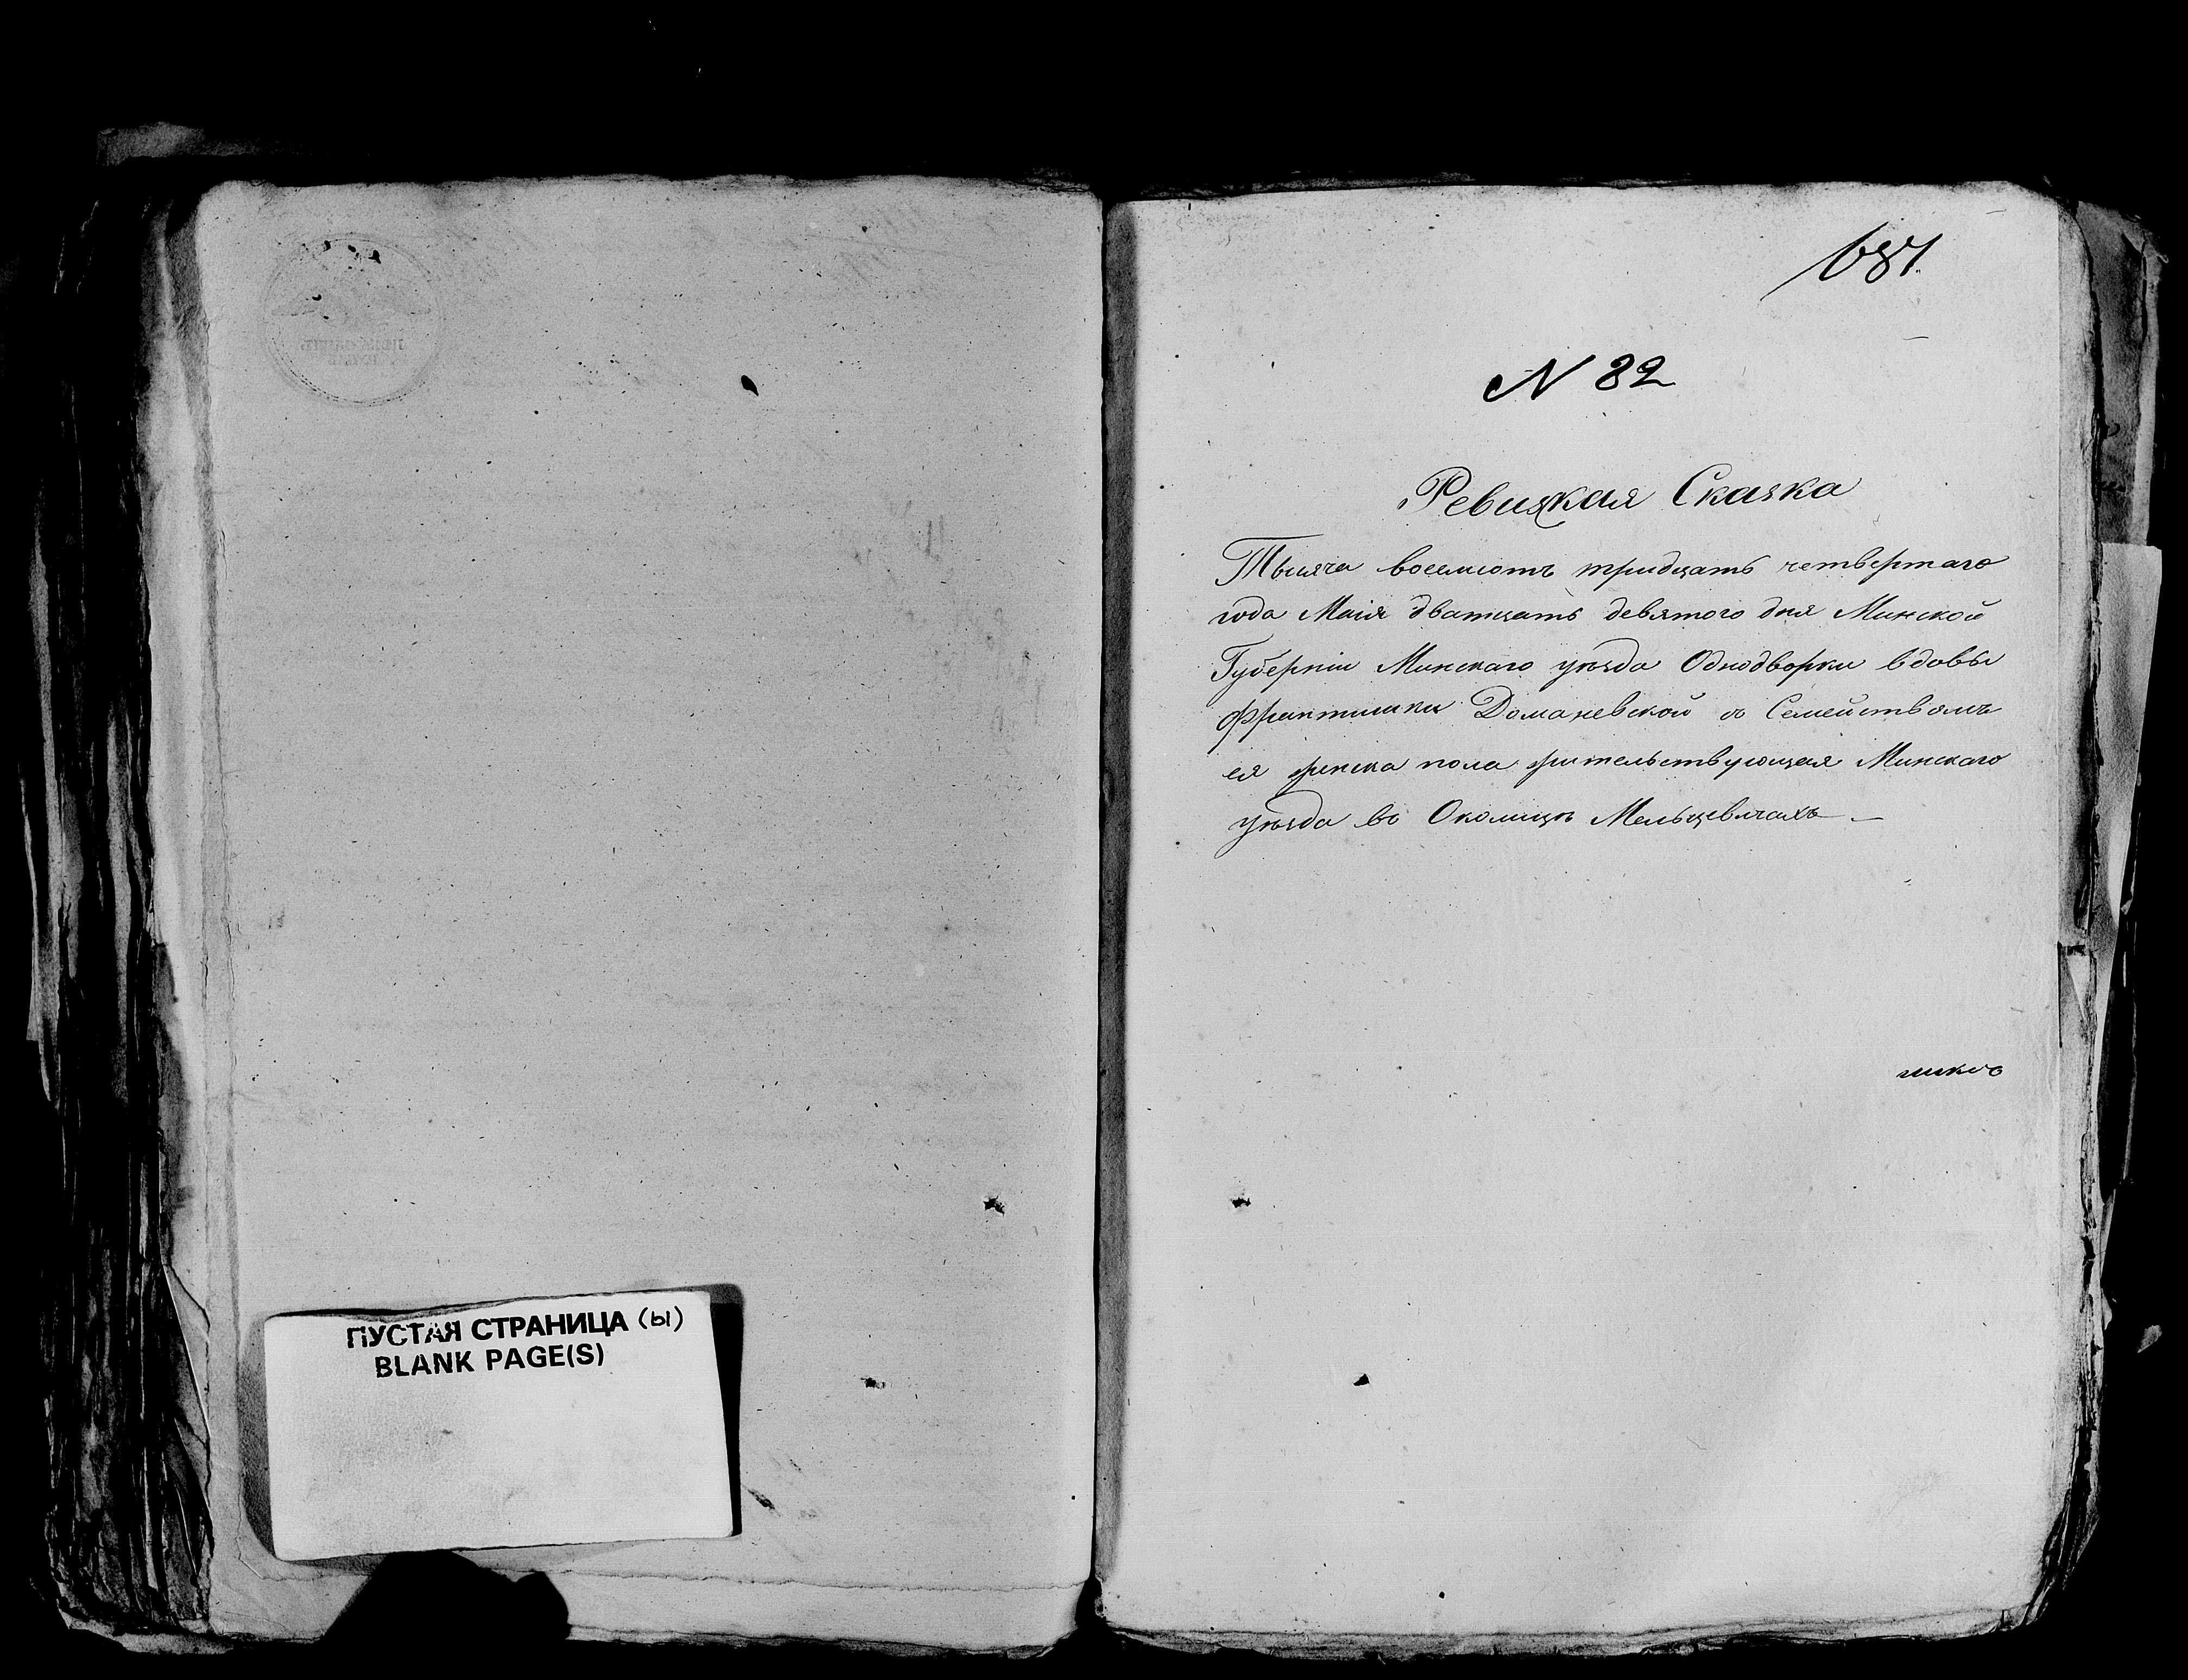 ПУСТАЯ СТРАНИЦА (ы)
BLANK PAGE(S)
681
N 82
Ревизкая Сказка
Тысяча восемсотъ тридцать четвертаго
года Маія дватцать девятого дня Минской
Губерніи Минскаго уѣзда Однодворки вдовы
Франтишки Доманевской со Семействомъ
ея женска пола жительствующая Минскаго
уѣзда во Околицѣ Мельцевичахъ —